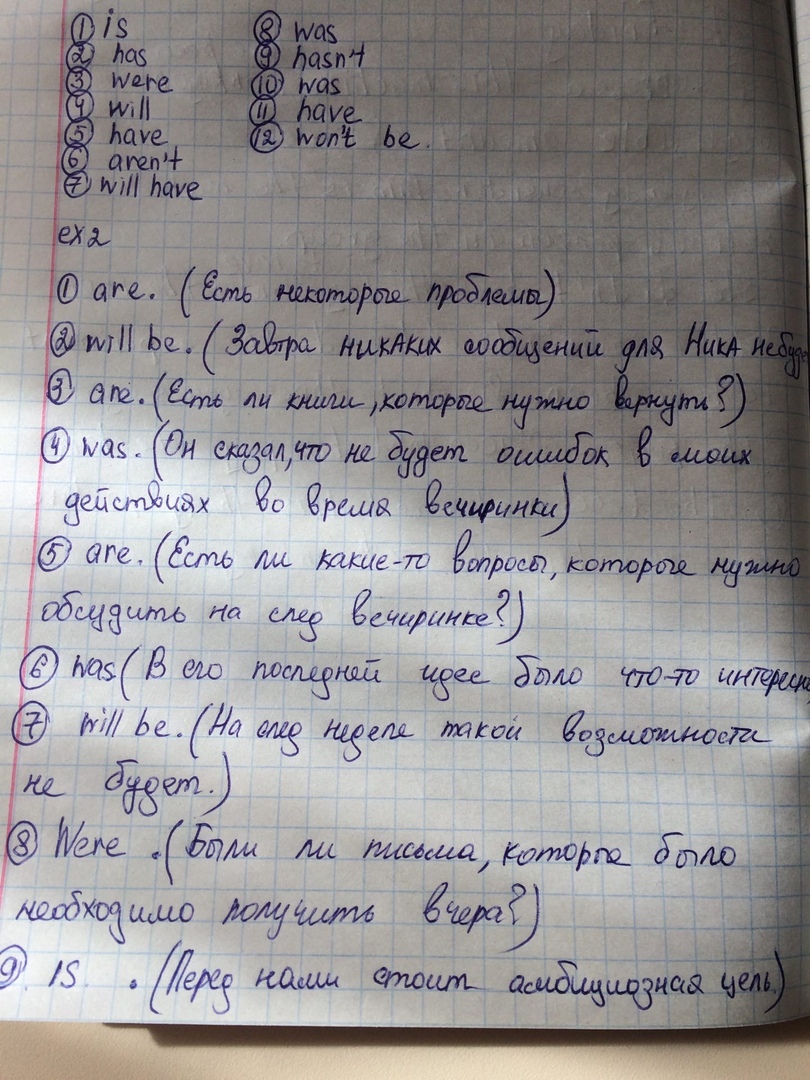 ① is ⑧ was
② has ⑨ hasn't
③ were ⑩ was
④ will ⑪ have
⑤ have ⑫ won't be.
⑥ aren't
⑦ will have
ex2
① are. (Есть некоторые проблемы)
② will be. (Завтра никаких сообщений для Ника небуд
③ are. (Есть ли книги, которые нужно вернуть?)
④ was. (Он сказал, что не будет ошибок в моих
действиях во время вечиринки)
⑤ are. (Есть ли какие-то вопросы, которые нужно
обсудить на след вечиринке?)
⑥ was (В его последней идее было что-то интересн
⑦ will be. (На след неделе такой возможности
не будет.)
⑧ Were. (Были ли письма, которые было
необходимо получить вчера?)
⑨ Is. (Перед нами стоит амбициозная цель)